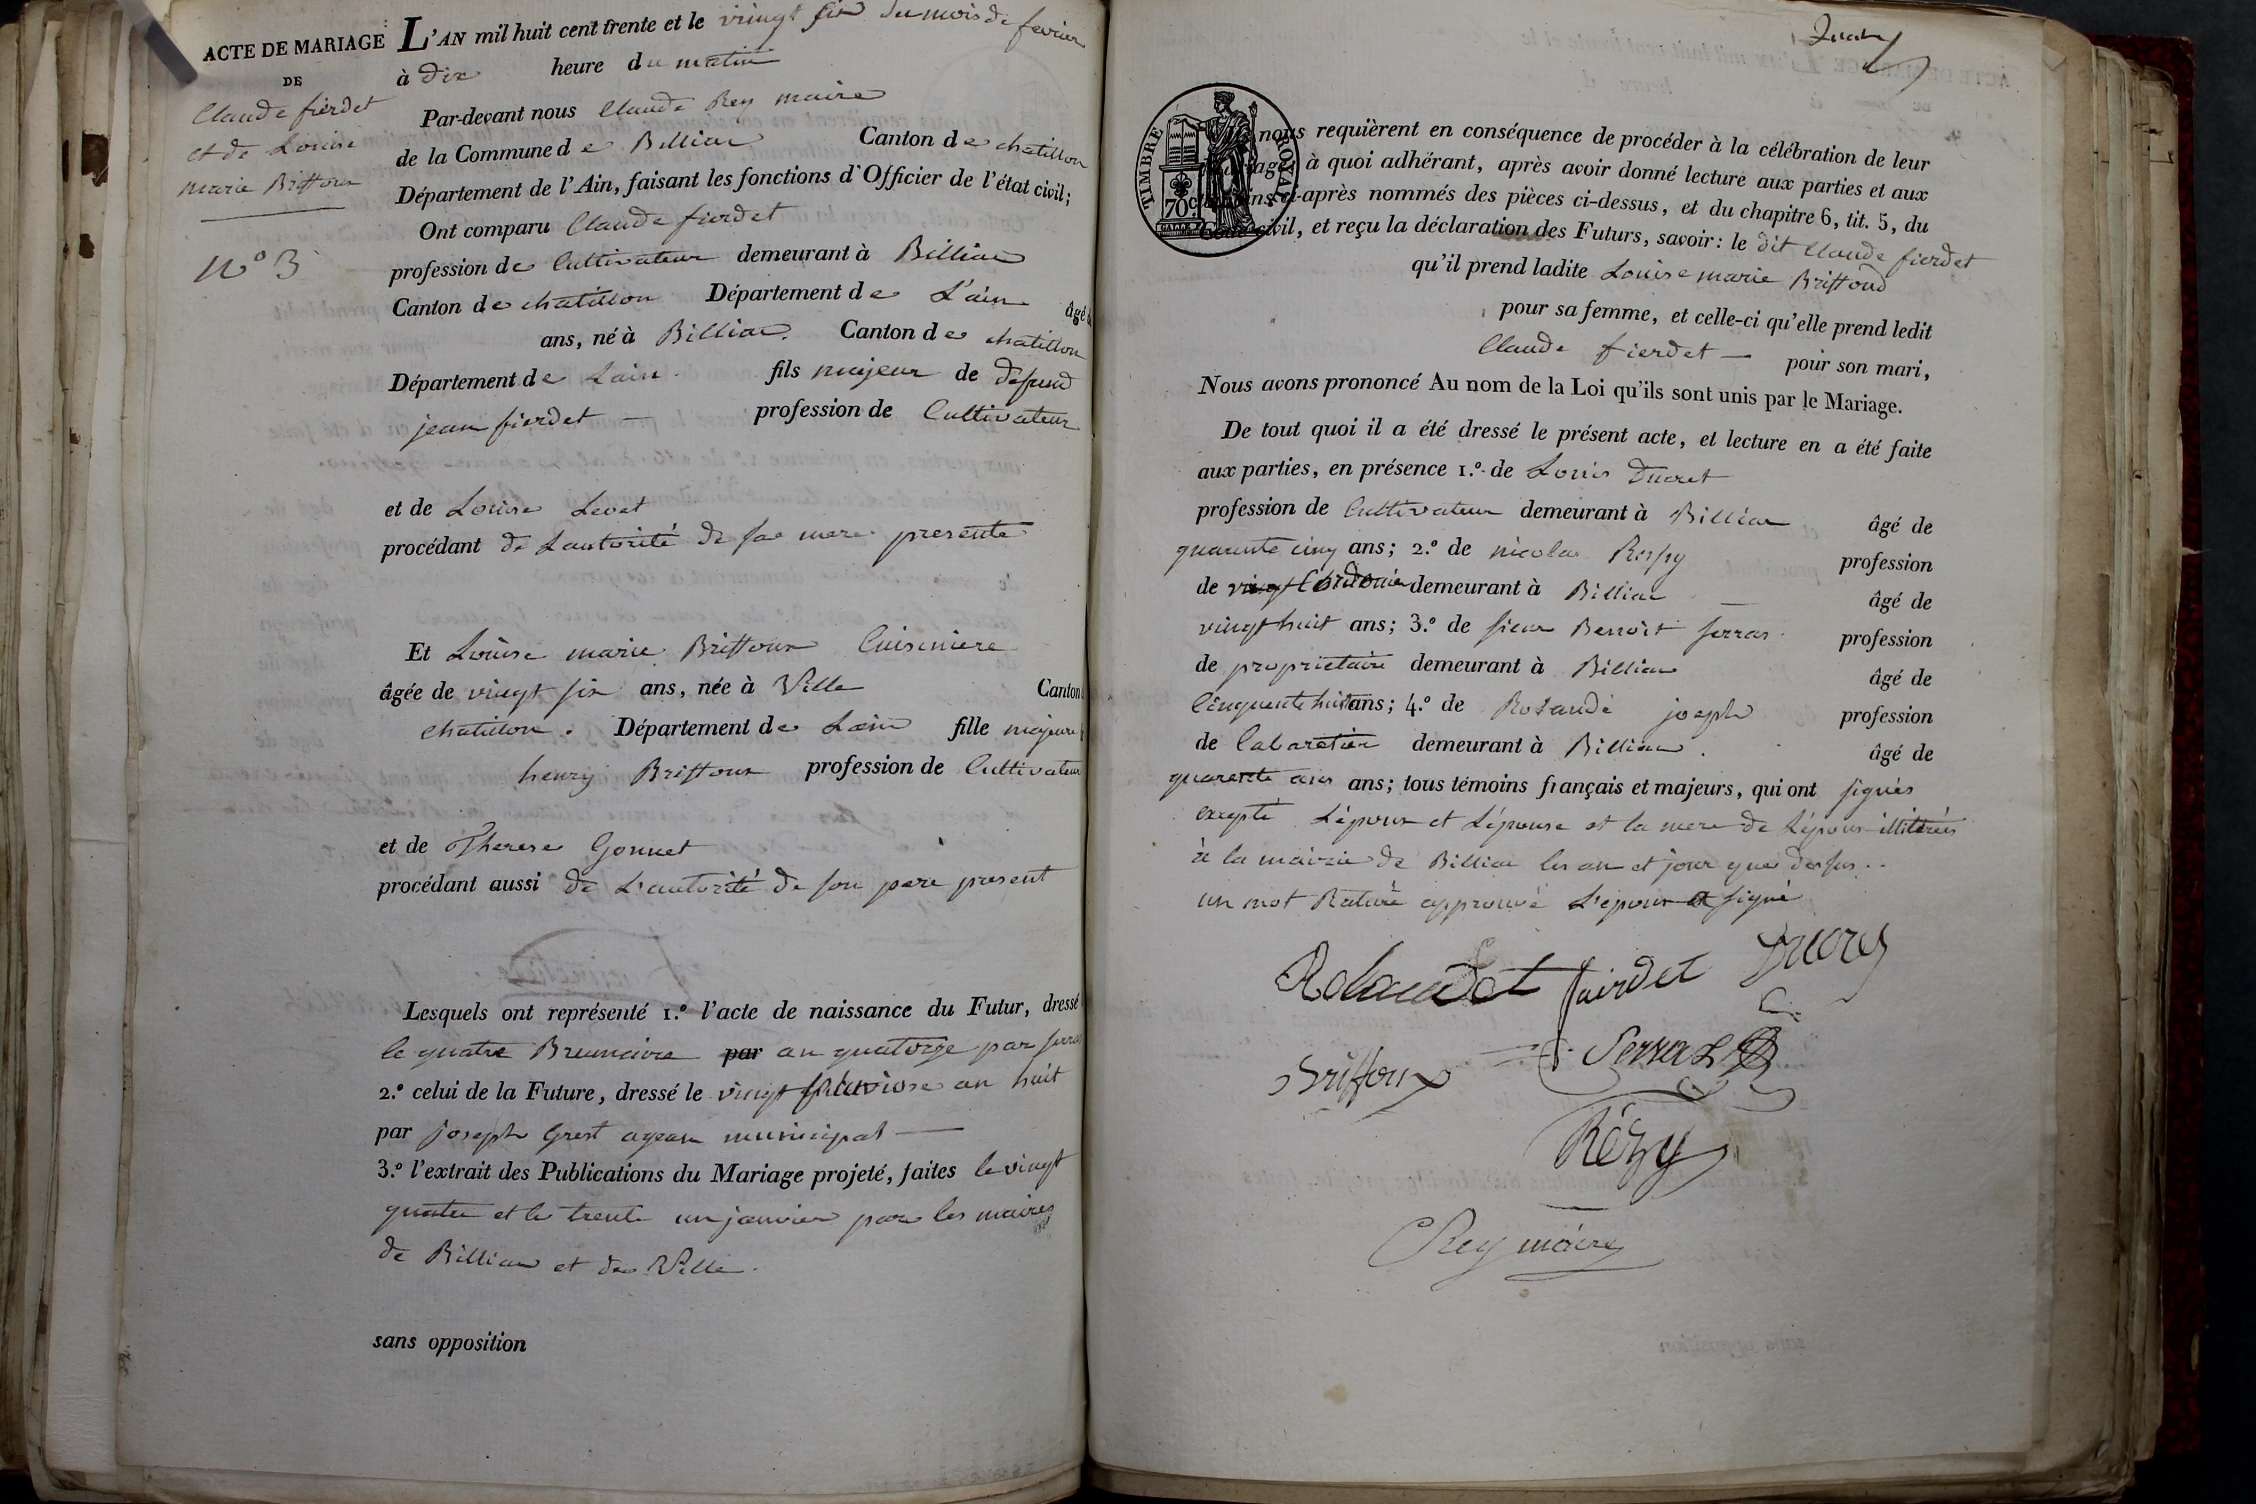 ACTE DE MARIAGE
DE
Claude fierdet
et de Louise
marie Briffoux
N° 3
L'AN mil huit cent trente et le vingt six du mois de fevrier
à dix heure du matin
Par-devant nous Claude Rey maire
de la Commune de Billiac Canton de chatillon
Département de l'Ain, faisant les fonctions d'Officier de l'état civil;
Ont comparu Claude fierdet
profession de Cultivateur demeurant à Billiac
Canton de chatillon Département de L'ain âgé
ans, né à Billiac. Canton de chatillon
Département de Lain fils majeur de defund
jean fierdet — profession de Cultivateur
et de Louise Levet
procédant de Lautorité de sa mere presente
Et Louise marie Briffoux Cuisiniere
âgée de vingt six ans, née à Ville Canton
chatillon. Département de Lain fille majeure
henry Briffoux profession de Cultivateur
et de Therese Gonnet
procédant aussi de L'autorité de son pere present
Lesquels ont représenté 1.° l'acte de naissance du Futur, dressé
le quatre Brumaire par an quatorze par serra
2.° celui de la Future, dressé le vingt pluviose an huit
par joseph Grest agean municipal —
3.° l'extrait des Publications du Mariage projeté, faites le vingt
quatre et le trente un janvier par les maires
de Billiac et de Ville.
sans opposition
TIMBRE ROYAL
70c
nous requièrent en conséquence de procéder à la célébration de leur
à quoi adhérant, après avoir donné lecture aux parties et aux
ci-après nommés des pièces ci-dessus, et du chapitre 6, tit. 5, du
civil, et reçu la déclaration des Futurs, savoir: le dit Claude fierdet
qu'il prend ladite Louise marie Briffoud
pour sa femme, et celle-ci qu'elle prend ledit
Claude fierdet — pour son mari,
Nous avons prononcé Au nom de la Loi qu'ils sont unis par le Mariage.
De tout quoi il a été dressé le présent acte, et lecture en a été faite
aux parties, en présence 1.° de Louis Ducret
profession de Cultivateur demeurant à Billiac âgé de
quarente cinq ans; 2.° de nicolas profession
de vingt Cordonier demeurant à Billiac — âgé de
vingt huit ans; 3.° de sieur Benoit serras profession
de proprietaire demeurant à Billiac âgé de
Cinquente huit ans; 4.° de Rolande joseph profession
de Cabaretier demeurant à Billiac. âgé de
quarente ans ans; tous témoins français et majeurs, qui ont signés
excepté L'epoux et L'épouse et la mere de L'époux illitérés
à la mairie de Billiac les an et jour que dessus..
un mot Raturé approuvé L'epoux a signé
Rolandet fairdet Ducret
Briffoux Serraz
Rézy
CRey maire